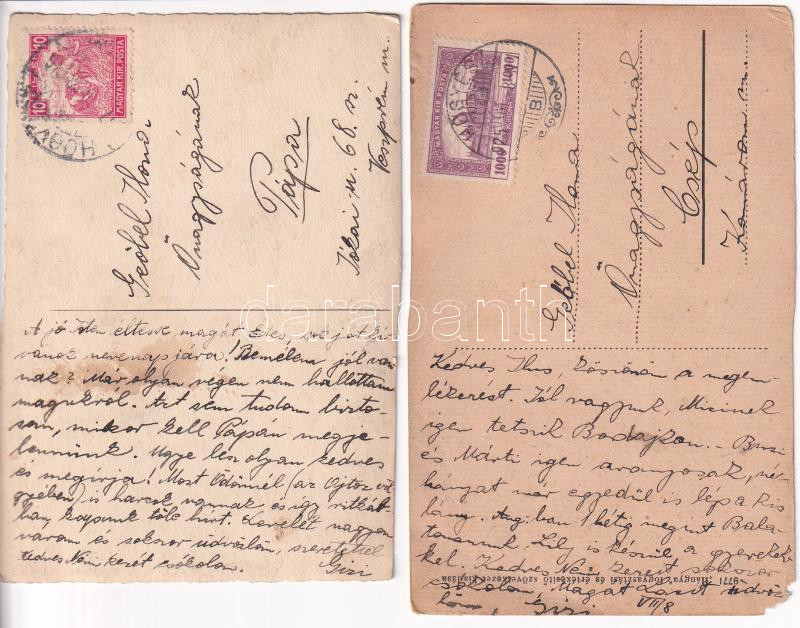 10 10
MAGYAR KIR. POSTA
Göbel Ilona
Őnagyságának
Pápa
Jókai u. 68. sz.
Veszprém m.
A jó Isten éltesse magát édes, sok jót kí-
vánok nevenapjára! Remélem jól van-
nak? Már olyan régen nem hallottam
magukról. Azt sem tudom bizto-
san, mikor kell Pápán megje-
lennünk. Ugye lesz olyan kedves
és megírja! Most Ödönnél (az
gyében) is harcok vannak és így ritkáb-
ban kapunk tőle hírt. Levelét nagyon
várom és sokszor üdvözlöm, szeretettel
kedves Néni kezét csókolom. Gizi
MAGYAR KIR. POSTA
1000 1000
HŐGYÉSZ
925
Göbbel Ilona
Őnagyságának
Csép
Komárom m.
Kedves Ilus, köszönöm a megem-
lékezést. Jól vagyunk, Micinek
igen tetszik Bodajkon. – Busi
és Márti igen aranyosak, né-
hányat már egyedül is lép a kis
lány. Aug.ban 1 hétig megint Bala-
tonunk, Lily is készül a gyerekek-
kel. Kedves Néni kezeit sokszor
csókolom, Magát Lacit üdvöz-
löm, Gizi
VIII/8
9771 "Hangya" Fogyasztási és értékesítő szövetkezet kiadása
darabanth